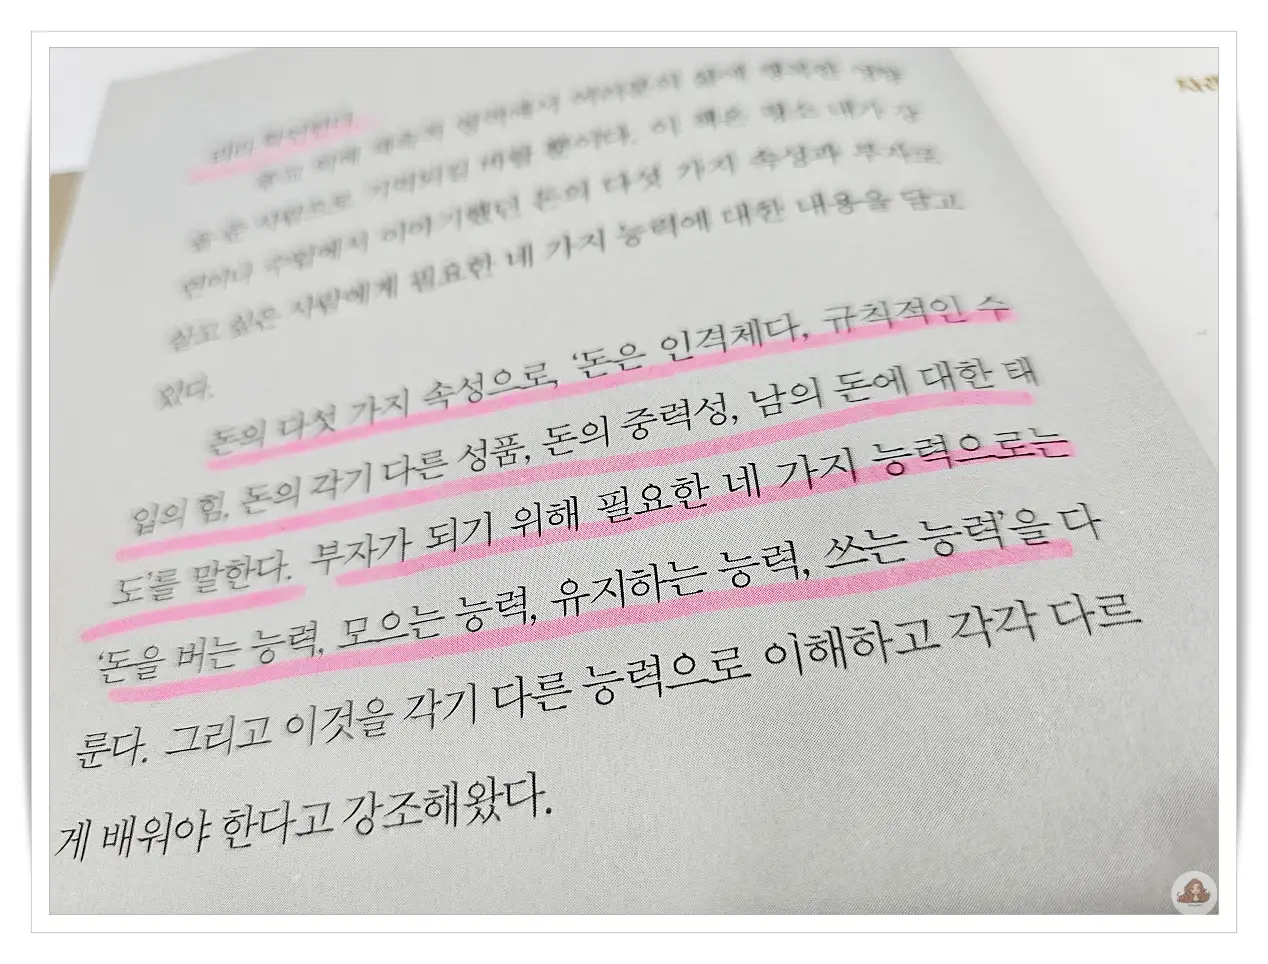 이 책은 평소 내가 강
돈의 다섯 가지 속성과 부자로
살고 싶은 사람에게 필요한 네 가지 능력에 대한 내용을 담고
있다.
돈의 다섯 가지 속성으로, ‘돈은 인격체다, 규칙적인 수
입의 힘, 돈의 각기 다른 성품, 돈의 중력성, 남의 돈에 대한 태
도’를 말한다. 부자가 되기 위해 필요한 네 가지 능력으로는
‘돈을 버는 능력, 모으는 능력, 유지하는 능력, 쓰는 능력’을 다
룬다. 그리고 이것을 각기 다른 능력으로 이해하고 각각 다르
게 배워야 한다고 강조해왔다.